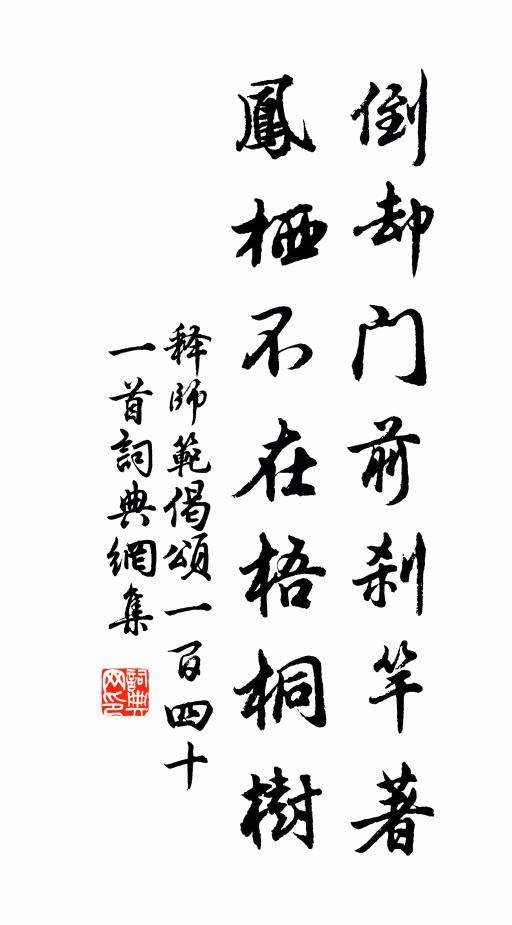 倒却門前刹竿著
鳳栖不在梧桐樹
释師範偈頌一百四十
一首詞典網集
詞典网印